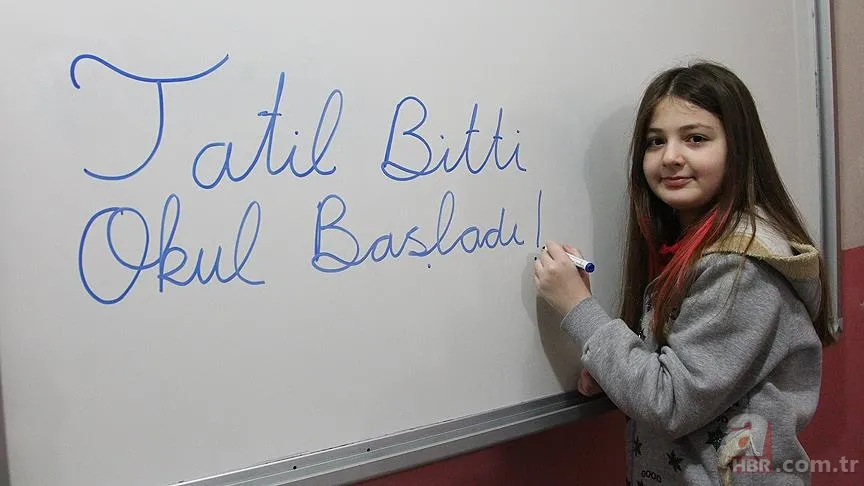 Tatil Bitti
Okul Başladı!
GOOD
a
HBR.com.tr